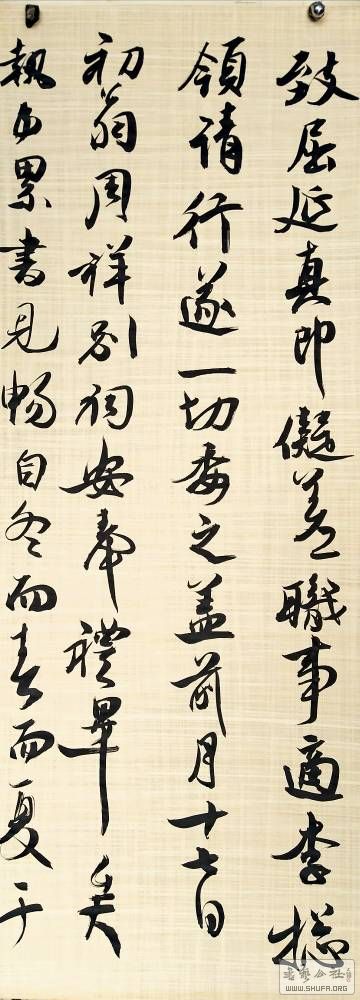 致屈延真即儗差職事適李揔
領請行遂一切委之盖前月十七日
初翁周祥别祠安奉禮畢矣
執累書見畅自冬而春而夏于
书艺公社
WWW.SHUFA.ORG